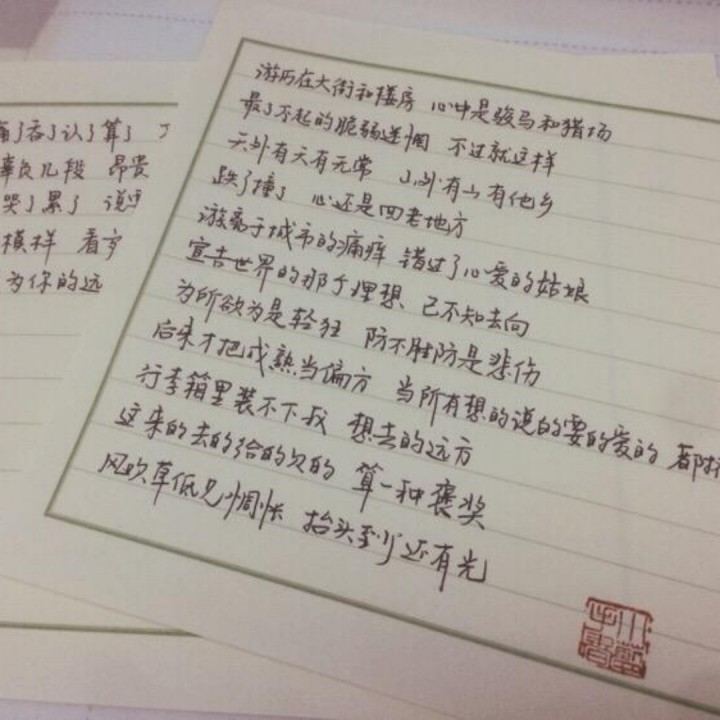 痛了吞了认了算了
辜负几段 昂贵
哭了累了
模样 看
为你的远
游历在大街和楼房 心中是骏马和猎场
最了不起的脆弱迷惘 不过就这样
天外有天有无常 山外有山有他乡
跌了撞了 心还是回老地方
游离于城市的痛痒 错过了心爱的姑娘
宣告世界的那个理想 已不知去向
为所欲为是轻狂 防不胜防是悲伤
后来才把成熟当偏方 当所有想的说的要的爱的 都
行李箱里装不下我 想去的远方
这来的去的给的欠的 算一种褒奖
风吹草低见惆怅 抬头至少还有光